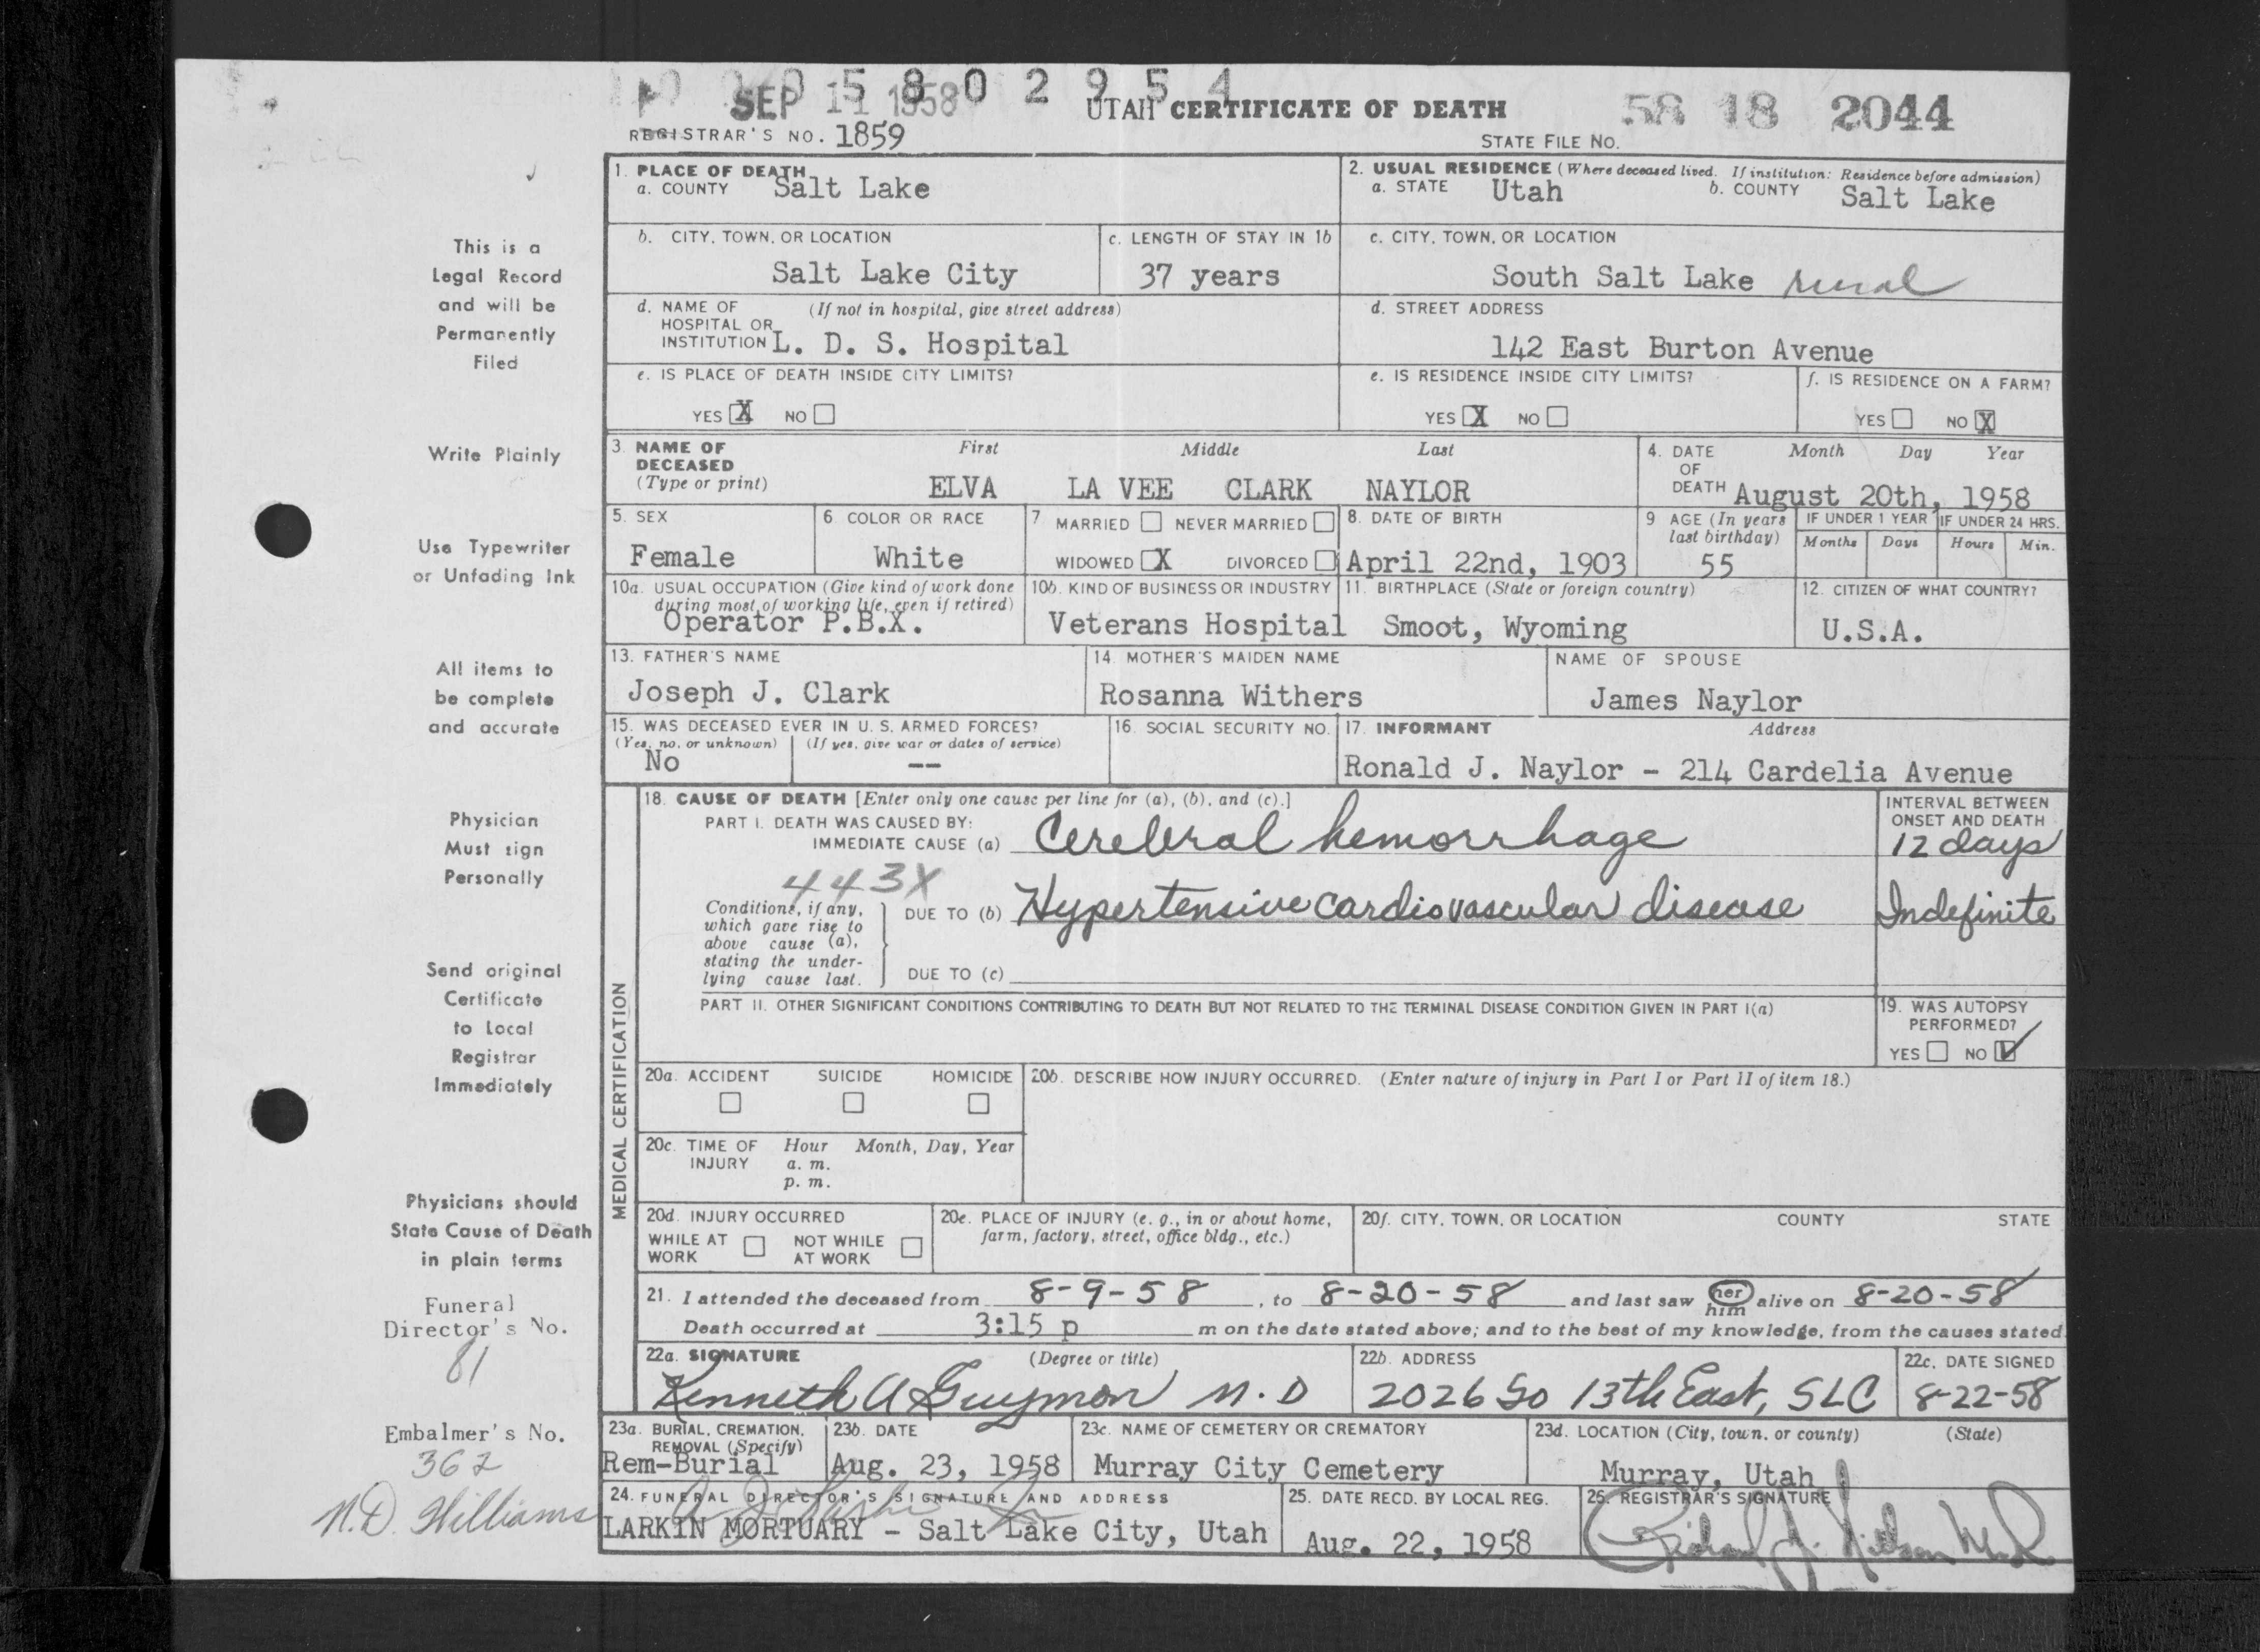 0 0 0 5 8 0 2 9 5 4
SEP 11 1958
UTAH CERTIFICATE OF DEATH
58 18 2044
REGISTRAR'S NO. 1859
STATE FILE NO.
1. PLACE OF DEATH
a. COUNTY Salt Lake
2. USUAL RESIDENCE (Where deceased lived. If institution: Residence before admission)
a. STATE Utah b. COUNTY Salt Lake
b. CITY, TOWN, OR LOCATION
Salt Lake City
c. LENGTH OF STAY IN 1b
37 years
c. CITY, TOWN, OR LOCATION
South Salt Lake rural
d. NAME OF (If not in hospital, give street address)
HOSPITAL OR
INSTITUTION L. D. S. Hospital
d. STREET ADDRESS
142 East Burton Avenue
e. IS PLACE OF DEATH INSIDE CITY LIMITS?
YES X NO
e. IS RESIDENCE INSIDE CITY LIMITS?
YES X NO
f. IS RESIDENCE ON A FARM?
YES NO X
3. NAME OF DECEASED
(Type or print)
First Middle Last
ELVA LA VEE CLARK NAYLOR
4. DATE OF DEATH
Month Day Year
August 20th, 1958
5. SEX
Female
6. COLOR OR RACE
White
7. MARRIED NEVER MARRIED
WIDOWED X DIVORCED
8. DATE OF BIRTH
April 22nd, 1903
9 AGE (In years last birthday)
55
IF UNDER 1 YEAR IF UNDER 24 HRS.
Months Days Hours Min.
10a. USUAL OCCUPATION (Give kind of work done
during most of working life, even if retired)
Operator P.B.X.
10b. KIND OF BUSINESS OR INDUSTRY
Veterans Hospital
11. BIRTHPLACE (State or foreign country)
Smoot, Wyoming
12. CITIZEN OF WHAT COUNTRY?
U.S.A.
13. FATHER'S NAME
Joseph J. Clark
14. MOTHER'S MAIDEN NAME
Rosanna Withers
NAME OF SPOUSE
James Naylor
15. WAS DECEASED EVER IN U. S. ARMED FORCES?
(Yes, no, or unknown) (If yes, give war or dates of service)
No --
16. SOCIAL SECURITY NO.
17. INFORMANT Address
Ronald J. Naylor - 214 Cardelia Avenue
MEDICAL CERTIFICATION
18. CAUSE OF DEATH [Enter only one cause per line for (a), (b), and (c).]
PART I. DEATH WAS CAUSED BY:
IMMEDIATE CAUSE (a) Cerebral hemorrhage
INTERVAL BETWEEN ONSET AND DEATH
12 days
443X
Conditions, if any,
which gave rise to
above cause (a),
stating the under-
lying cause last.
DUE TO (b) Hypertensive cardiovascular disease
Indefinite
DUE TO (c)
PART II. OTHER SIGNIFICANT CONDITIONS CONTRIBUTING TO DEATH BUT NOT RELATED TO THE TERMINAL DISEASE CONDITION GIVEN IN PART I(a)
19. WAS AUTOPSY PERFORMED?
YES NO
20a. ACCIDENT SUICIDE HOMICIDE
20b. DESCRIBE HOW INJURY OCCURRED. (Enter nature of injury in Part I or Part II of item 18.)
20c. TIME OF INJURY
Hour Month, Day, Year
a. m.
p. m.
20d. INJURY OCCURRED
WHILE AT WORK NOT WHILE AT WORK
20e. PLACE OF INJURY (e. g., in or about home,
farm, factory, street, office bldg., etc.)
20f. CITY, TOWN, OR LOCATION COUNTY STATE
21. I attended the deceased from 8-9-58, to 8-20-58 and last saw her him alive on 8-20-58
Death occurred at 3:15 p m on the date stated above; and to the best of my knowledge, from the causes stated.
22a. SIGNATURE (Degree or title)
Kenneth A Guymon M.D
22b. ADDRESS
2026 So 13th East, SLC
22c. DATE SIGNED
8-22-58
23a. BURIAL, CREMATION,
REMOVAL (Specify)
Rem-Burial
23b. DATE
Aug. 23, 1958
23c. NAME OF CEMETERY OR CREMATORY
Murray City Cemetery
23d. LOCATION (City, town, or county) (State)
Murray, Utah
24. FUNERAL DIRECTOR'S SIGNATURE AND ADDRESS
LARKIN MORTUARY - Salt Lake City, Utah
25. DATE RECD. BY LOCAL REG.
Aug. 22, 1958
26. REGISTRAR'S SIGNATURE
This is a
Legal Record
and will be
Permanently
Filed
Write Plainly
Use Typewriter
or Unfading Ink
All items to
be complete
and accurate
Physician
Must sign
Personally
Send original
Certificate
to Local
Registrar
Immediately
Physicians should
State Cause of Death
in plain terms
Funeral
Director's No.
81
Embalmer's No.
362
N.D. Williams